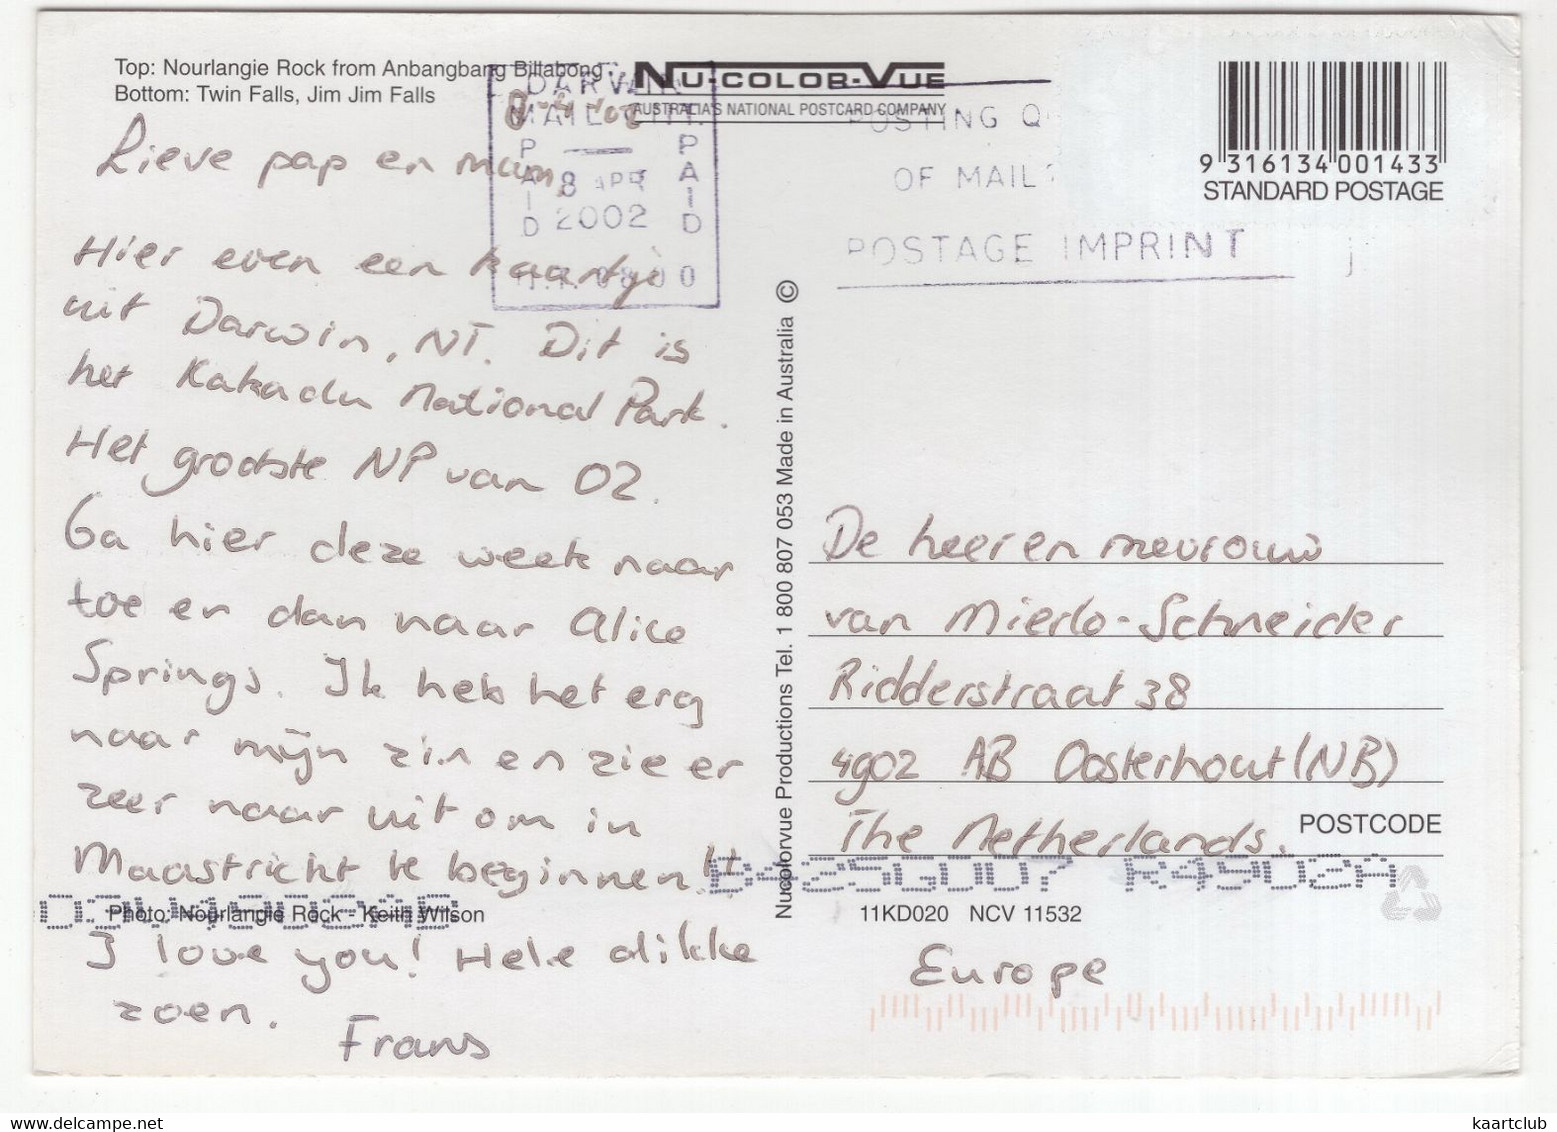 Top: Nourlangie Rock from Anbangbang Billabong
Bottom: Twin Falls, Jim Jim Falls
NU-COLOR-VUE
AUSTRALIA'S NATIONAL POSTCARD COMPANY
DARWIN
MAIL
PAID
PAID
8 APR
2002
0800
POSTING
OF MAIL
POSTAGE IMPRINT
9 316134 001433
STANDARD POSTAGE
8-4-'02
Lieve pap en mam,
Hier even een kaartje
uit Darwin, NT. Dit is
het Kakadu National Park.
Het grootste NP van OZ.
Ga hier deze week naar
toe en dan naar Alice
Springs. Ik heb het erg
naar mijn zin en zie er
zeer naar uit om in
Maastricht te beginnen!!
Photo: Nourlangie Rock - Keith Wilson
I love you! Hele dikke
zoen.
Frans
Nucolorvue Productions Tel. 1 800 807 053 Made in Australia ©
De heer en mevrouw
van Mierlo-Schneider
Ridderstraat 38
4902 AB Oosterhout (NB)
The Netherlands.
POSTCODE
11KD020 NCV 11532
Europe
www.delcampe.net
kaartclub